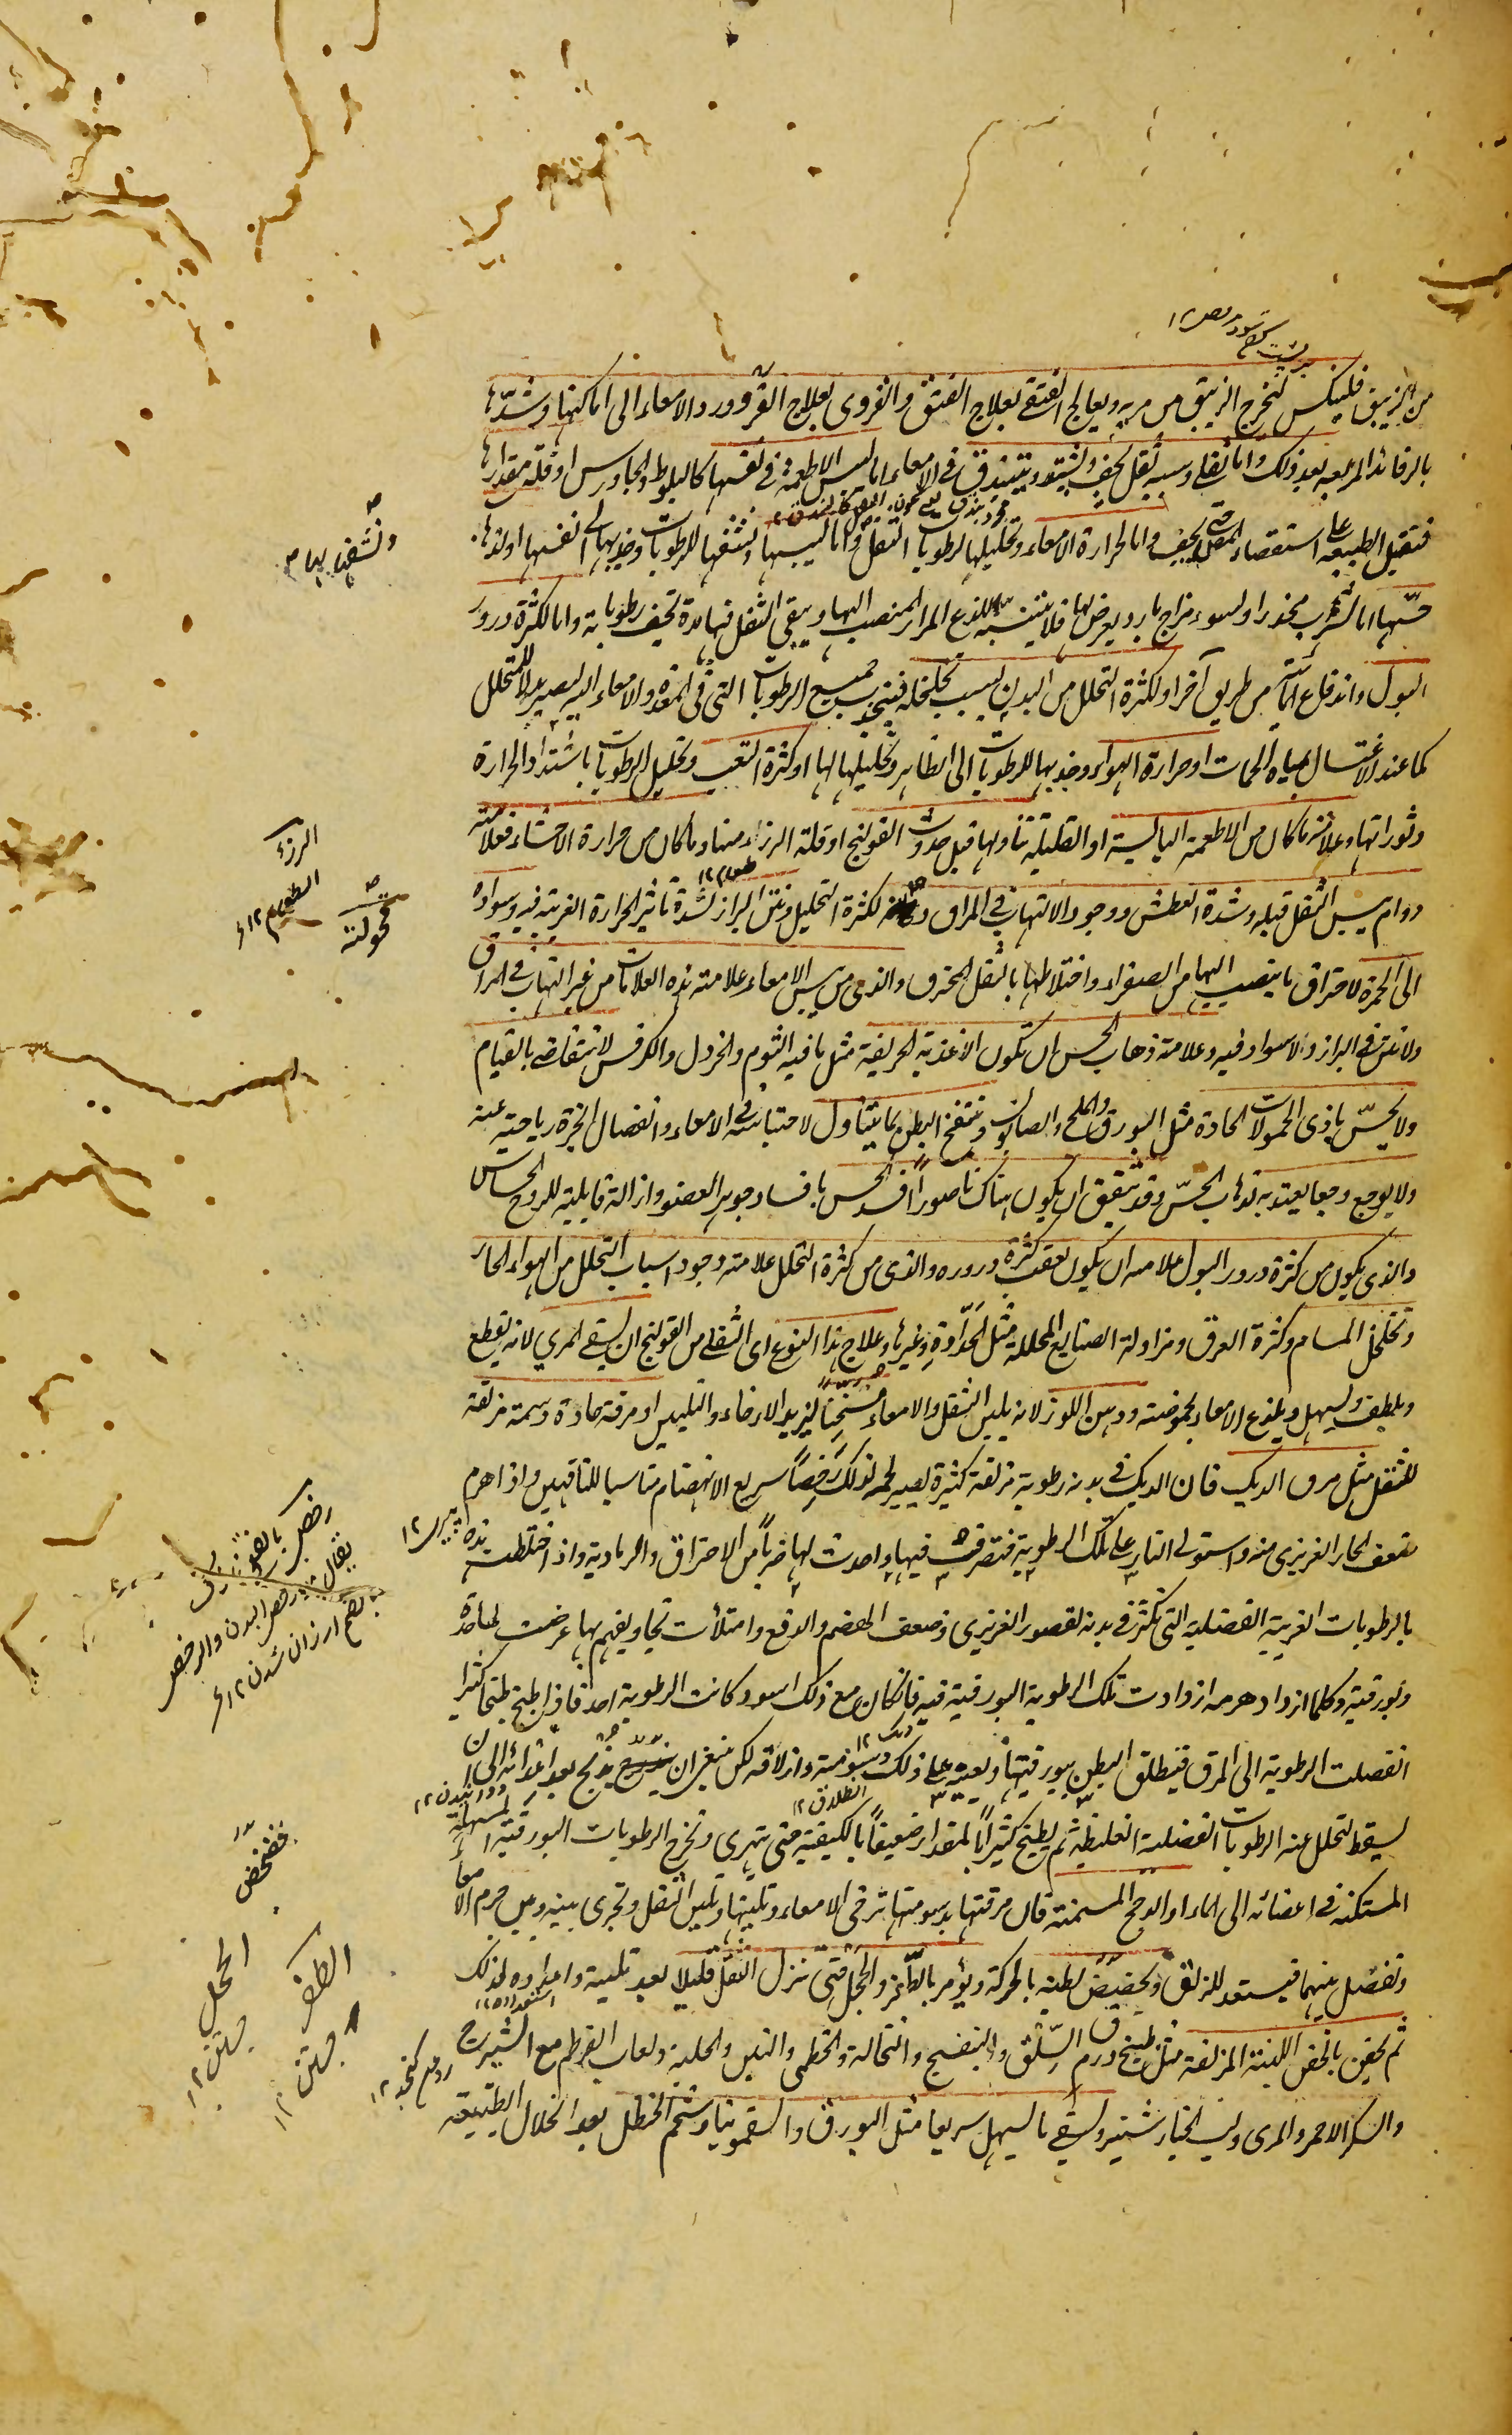 من الزيبق فلينكس لنخرج الزيبق من مربه ويعالج الفتقى بعلاج الفتق والقروى بعلاج القرو ورد الامعاء الى اماكنها وشدّها
بالرفائد المربعه بعد ذلك واما ثقلى وسببه ثقل يجف ويشتد ويتبندق فى الامعاء اما ليبس الاطعمة فى نفسها كالبلوط والجاورس او قلة مقدارها
فتقبل الطبيعة على استقصاء الثقل حتى يجف واما لحرارة الامعاء وتحليلها لرطوبات الثقل واما ليبسها ونشفها للرطوبات وجذبها الى نفسها او لذهاب
حسّها اما لشرب مخدر او لسوء مزاج بارد يعرض لها فلا يتنبه للذع المرار المنصب اليها ويبقى الثقل فيها مدة تجف رطوباته واما لكثرة درور
البول واندفاع المائية من طريق آخر او لكثرة التحلل من البدن بسبب تخلخله فينجذب جميع الرطوبات التى فى المعدة والامعاء اليه ليصير بدلا للمتحلل
كما عند الاغتسال بمياه الحمات او حرارة الهواء وجذبها للرطوبات الى الظاهر وتحليلها لها او كثرة التعب وتحليل الرطوبات باشتداد الحرارة
وثورانها وعلامة ما كان من الاطعمة اليابسة او القليلة تناولها قبل حدوث القولنج او قلة الرزء منها وما كان من حرارة الاحشاء فعلامته
دوام يبس الثقل قبله وشدة العطش ووجود الالتهاب فى المراق لكثرة التحليل ونتن البراز لشدة تأثير الحرارة الغريبة فيه وسواده
الى الحمرة لاحتراق ما ينصب اليها من الصفراء واختلاطها بالثقل المحترق والذى من يبس الامعاء علامته هذه العلامات من غير التهاب فى المراق
ولا نتن فى البراز ولا سواد فيه وعلامة ذهاب الحس ان تكون الاغذية الحريفة مثل ما فيه الثوم والخردل والكرفس لا تتقاضى بالقيام
ولا يحسّ باذى الحمولات الحادة مثل البورق والملح والصابون وتنتفخ البطن بما يتناول لاحتباسه فى الامعاء وانفصال ابخرة رياحية عنه
ولا يوجع وجعا يعتد به لذهاب الحسّ وقد يتفق ان يكون هناك ناصورا افسد الحس بافساد جوهر العضو وازالة قابليته للروح الحساس
والذى يكون من كثرة درور البول علامته ان يكون بعقب كثرة دروره والذى من كثرة التحلل علامته وجود اسباب التحلل من الهواء الحار
وتخلخل المسام وكثرة العرق ومزاولة الصنايع المحللة مثل الحدادة وغيرها وعلاج هذا النوع اى الثقلى من القولنج ان يسقى المرى لانه يقطع
ويلطف ويسهل ويلذع الامعاء بحموضته ودهن اللوز لانه يلين الثقل والامعاء مسخنا ليزيد الارخاء والتليين او مرقة حادة دسمة مزلقة
للثقل مثل مرق الديك فان الديك فى بدنه رطوبة مزلقة كثيرة يصير لحمه لذلك رخصا سريع الانهضام مناسبا للناقهين واذا هرم
ضعف الحار الغريزى منه واستولى النارى على تلك الرطوبة فتصرفت فيها واحدث لها ضربا من الاحتراق والرمادية واذا اختلطت هذه
بالرطوبات الغريبة الفضلية التى تكثر فى بدنه لقصور الغريزى وضعف الهضم والدفع وامتلأت تجاويفه بها عرضت لها حدة
وبورقية وكلما ازداد هرمه ازدادت تلك الرطوبة البورقية فيه فان كان مع ذلك اسود كانت الرطوبة احد فاذا طبخ طبخا كثيرا
انفصلت الرطوبة الى المرق فيطلق البطن ببورقيتها ويعينه على ذلك دسومته وازلاقه لكن ينبغى ان يذبح بعد اعدائه الى ان
يسقط لتحلل عنه الرطوبات الفضلية الغليظة ثم يطبخ كثيرا بالمقدار ضعيفا بالكيفية حتى يتهرى وتخرج الرطوبات البورقية المسهلة
المستكنة فى اعضائه الى الماء او الدجج المسمنة فان مرقتها بدسومتها ترخى الامعاء وتلينها وتلين الثقل وتجرى بينه وبين جرم الامعاء
وتفصل بينهما فيستعد للزلق وتخضيض بطنه بالحركة ويؤمر بالطفر والحجل حتى ينزل الثقل قليلا بعد تليينه واعداده لذلك
ثم يحقن بالحقن اللينة المزلقة مثل طبيخ ورق السلق والبنفسج والنخالة والخطمى والتين والحلبة ولعاب القرطم مع الشيرج
والسكر الاحمر والمرى ولب الخيار شنبر ويسقى ما يسهل سريعا مثل البورق والسقمونيا وشحم الحنظل بعد انحلال الطبيعة
الرزء
الطعام ١٢
الطفر
جستن ١٢
الحجل
جستن ١٢